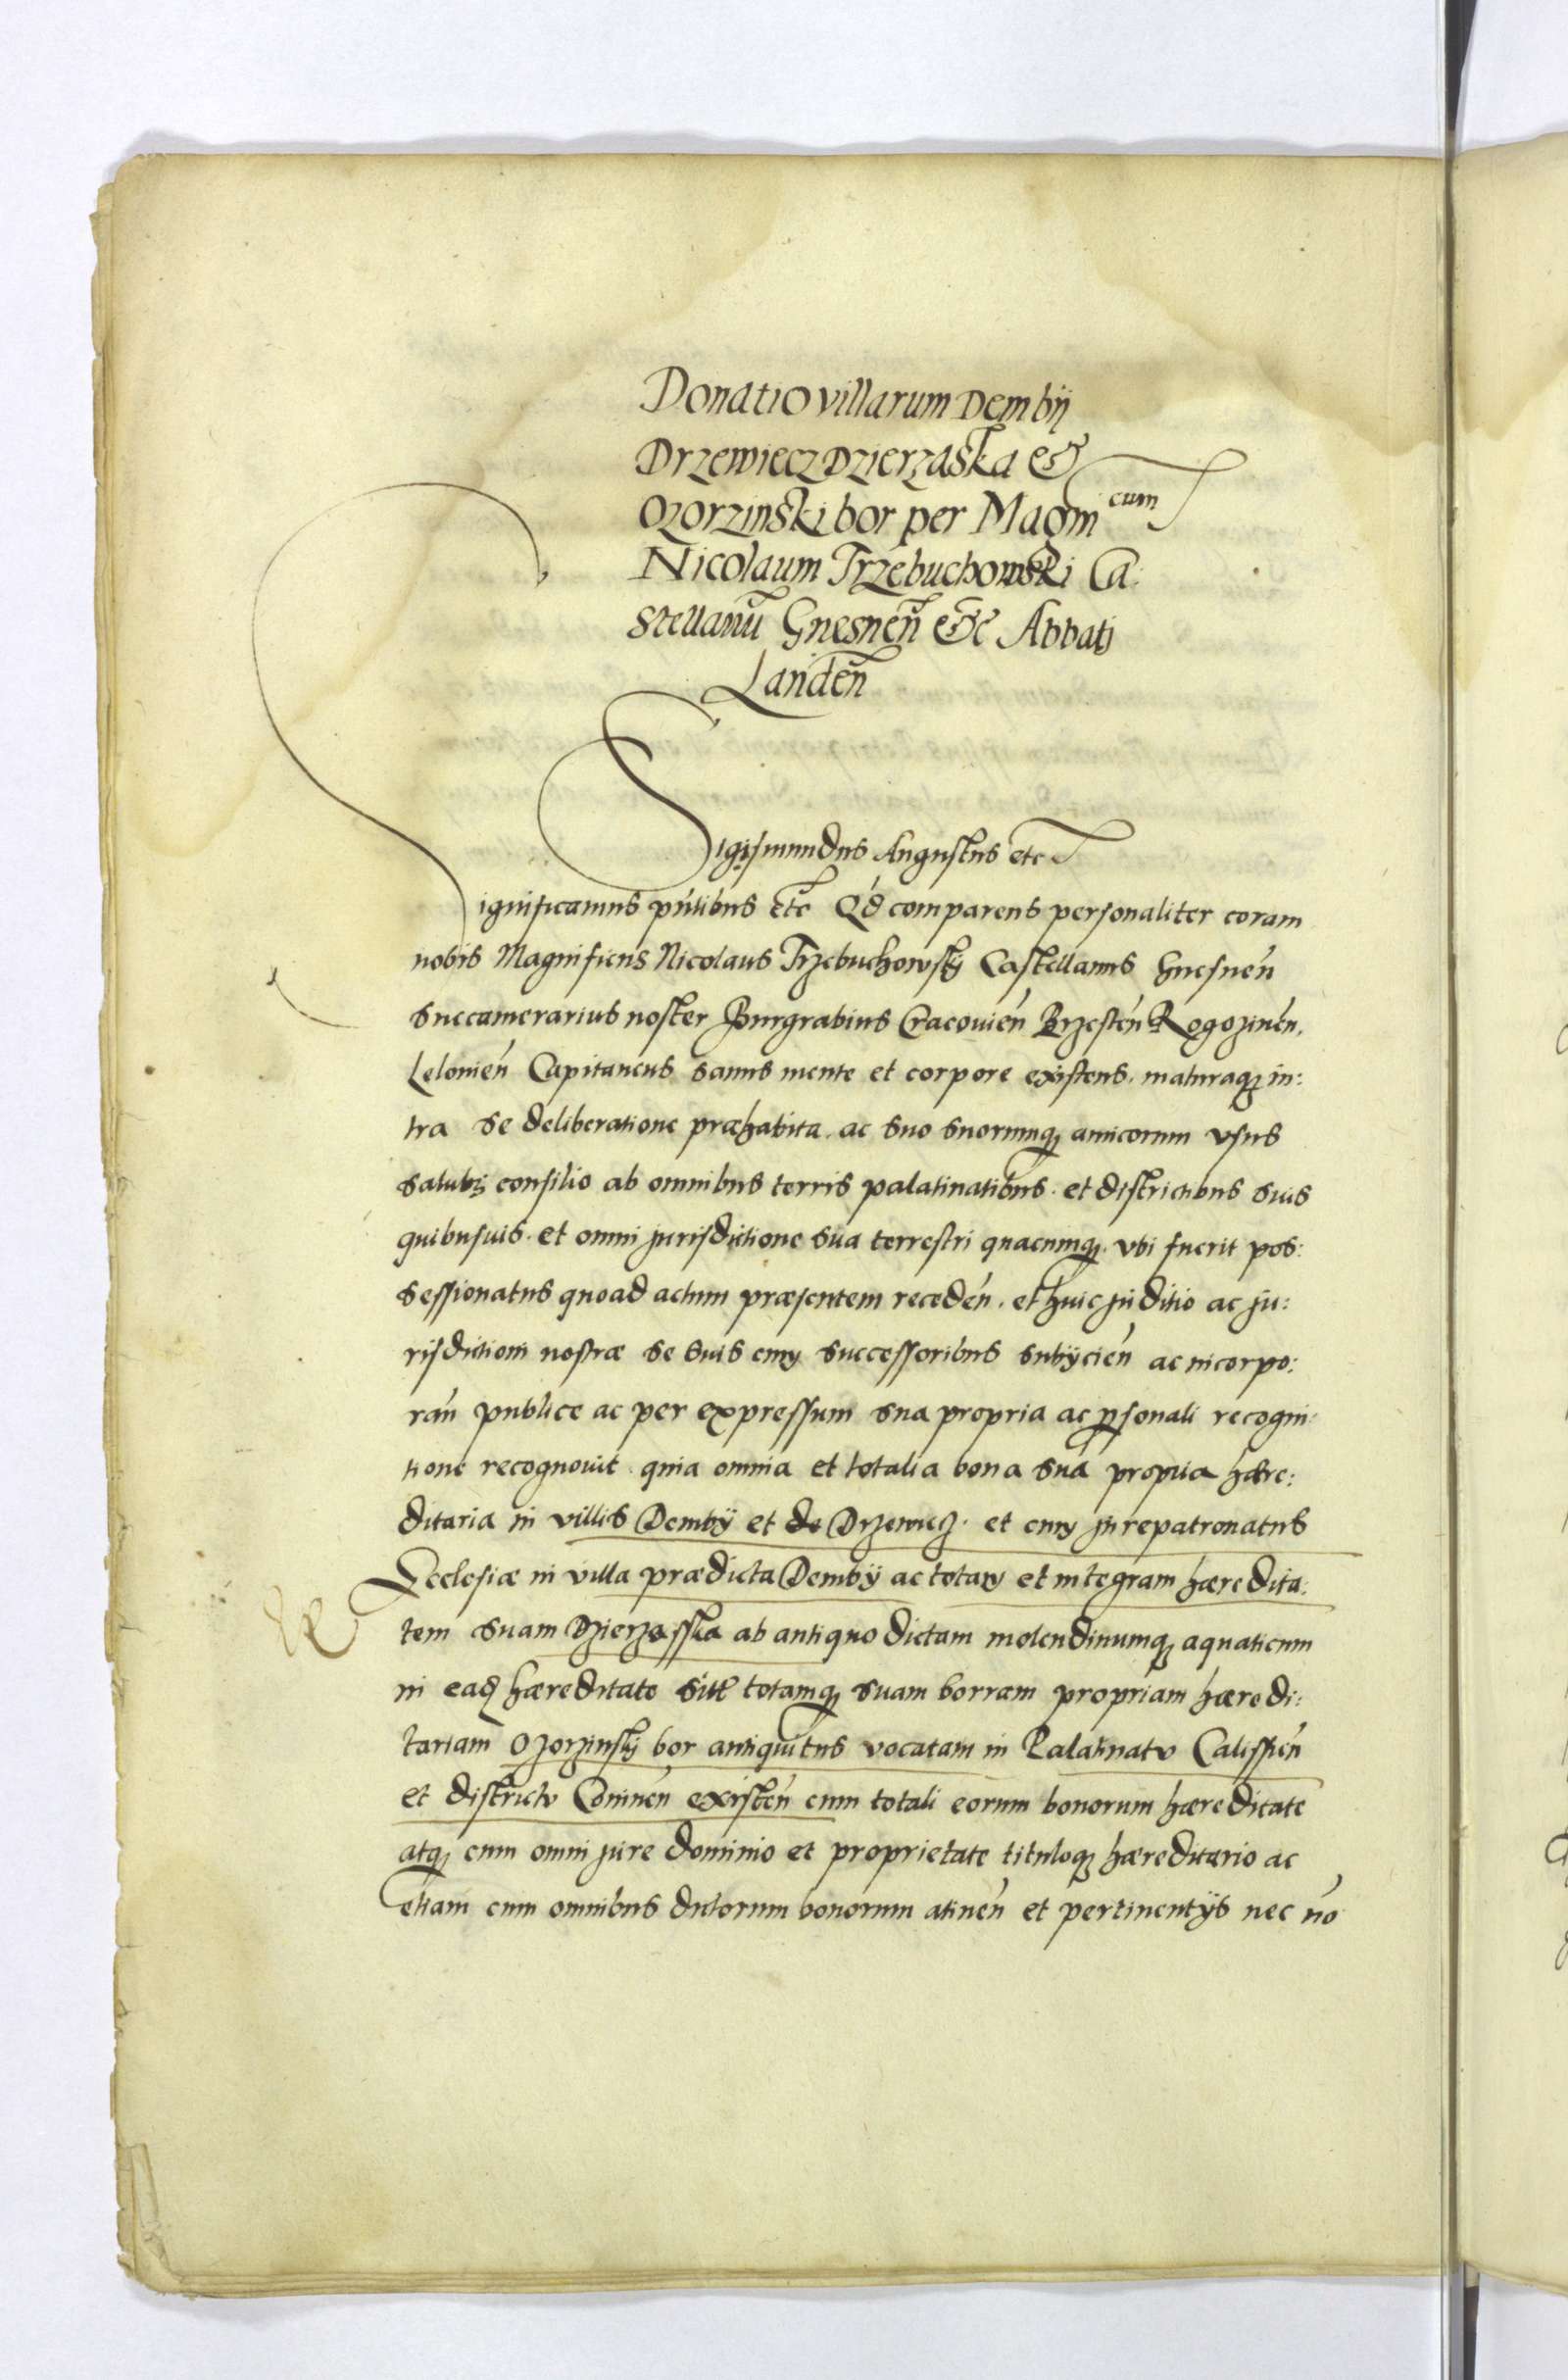 Donatio villarum Dembij
Drzewiecz Dzierzaska &
Ozorzinski bor per Magni cum
Nicolaum Trzebuchowski Ca:
stellanũ Gnesneñ &c Abbati
Landeñ
Sigismundus Augustus etc
Significamus pñtibus etc Qd comparens personaliter coram
nobis Magnificus Nicolaus Trzebuchowskij Castellanus Gnesneñ
Succamerarius noster Burgrabius Cracovieñ Brzesteñ Rogozineñ.
Lelovieñ Capitaneus sanus mente et corpore existens. maturaqȝ in:
tra se deliberatione præhabita. ac suo suorumqȝ amicorum vsus
salubrj consilio ab omnibus terris palatinatibus. et districtibus suis
quibusuis. et omni jurisdictione sua terrestri quacunqȝ. vbi fuerit pos:
sessionatus quoad actum præsentem recedeñ. et huic juditio ac ju:
risdictioni nostræ se suis cum successoribus subijcieñ ac incorpo:
rañ publice ac per expressum sua propria ac ꝑsonali recogni:
tione recognovit quia omnia et totalia bona sua propria hære:
ditaria in villis Dembij et de Drzewiecz. et cum jurepatronatus
Ecclesiæ in villa prædicta Dembij ac totam et integram hæredita:
tem suam Dzierzasska ab antiquo dictam molendinumqȝ aquaticum
in eadȝ hæreditate sitũ totamqȝ suam borram propriam hæredi:
tariam Ozorzinskj bor antiquitus vocatam in Palatinatu Calissieñ
et districtu Conineñ existeñ cum totali eorum bonorum hæreditate
atqȝ cum omni jure dominio et proprietate tituloqȝ hæreditario ac
etiam cum omnibus dictorum bonorum atineñ et pertinentijs nec nõ